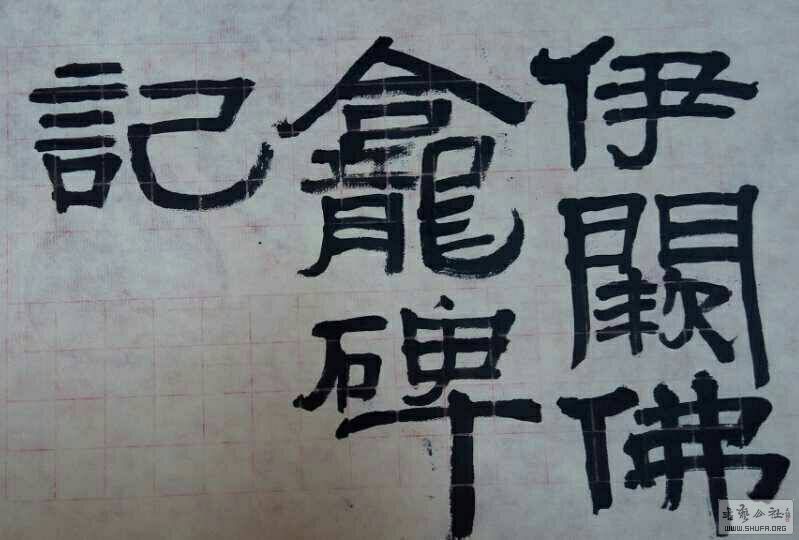 伊闕佛
龕碑
記
WWW.SHUFA.ORG